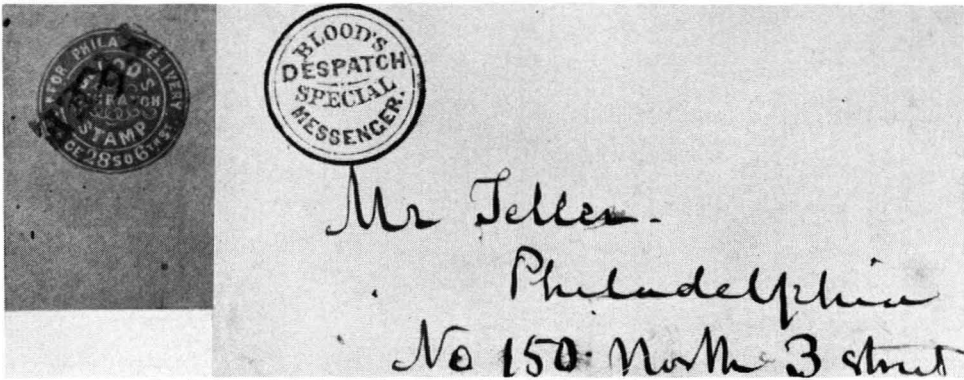 FOR PHILA DELIVERY
BLOOD'S
DESPATCH
STAMP
28 SO 6TH ST
BLOOD'S
DESPATCH
SPECIAL
MESSENGER.
Mr Teller.
Philadelphia
No 150 North 3 street